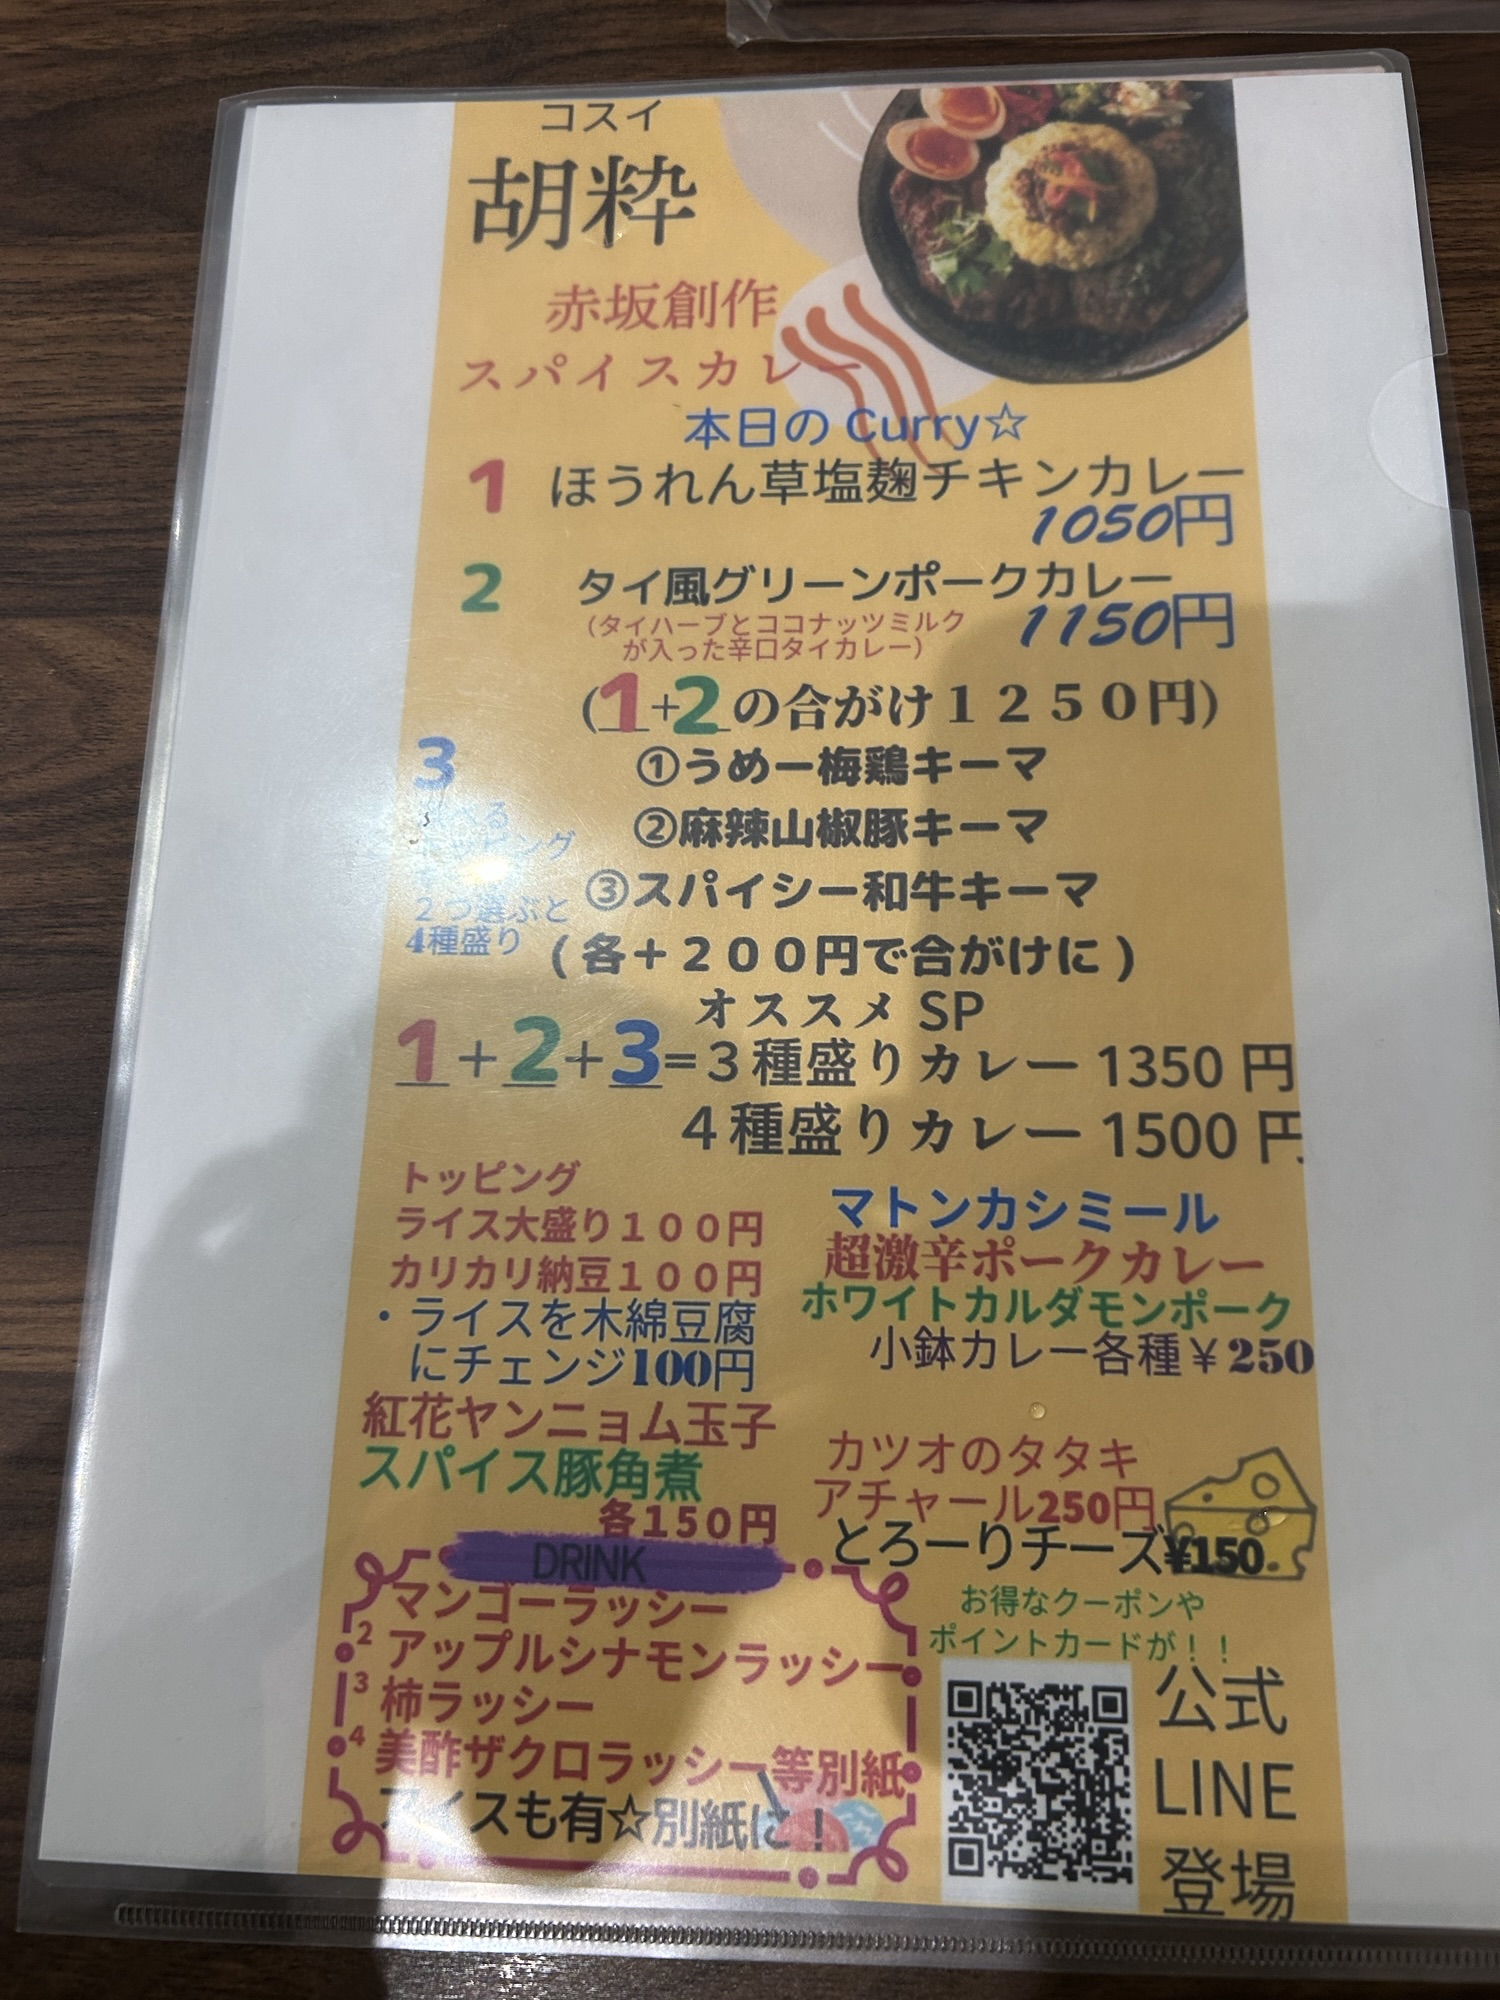 コスイ
胡粋
赤坂創作
スパイスカレー
本日の Curry☆
1 ほうれん草塩麹チキンカレー
1050円
2 タイ風グリーンポークカレー
(タイハーブとココナッツミルク
が入った辛口タイカレー)
1150円
(1+2の合がけ1250円)
3
①うめー梅鶏キーマ
②麻辣山椒豚キーマ
③スパイシー和牛キーマ
2つ選ぶと
4種盛り
(各+200円で合がけに)
オススメ SP
1+2+3=3種盛りカレー 1350 円
4種盛りカレー 1500 円
トッピング
ライス大盛り100円
カリカリ納豆100円
・ライスを木綿豆腐
にチェンジ100円
紅花ヤンニョム玉子
スパイス豚角煮
各150円
マトンカシミール
超激辛ポークカレー
ホワイトカルダモンポーク
小鉢カレー各種¥250
カツオのタタキ
アチャール250円
とろーりチーズ¥150
DRINK
マンゴーラッシー
2 アップルシナモンラッシー
3 柿ラッシー
4 美酢ザクロラッシー等別紙
アイスも有☆別紙に!
お得なクーポンや
ポイントカードが!!
公式
LINE
登場